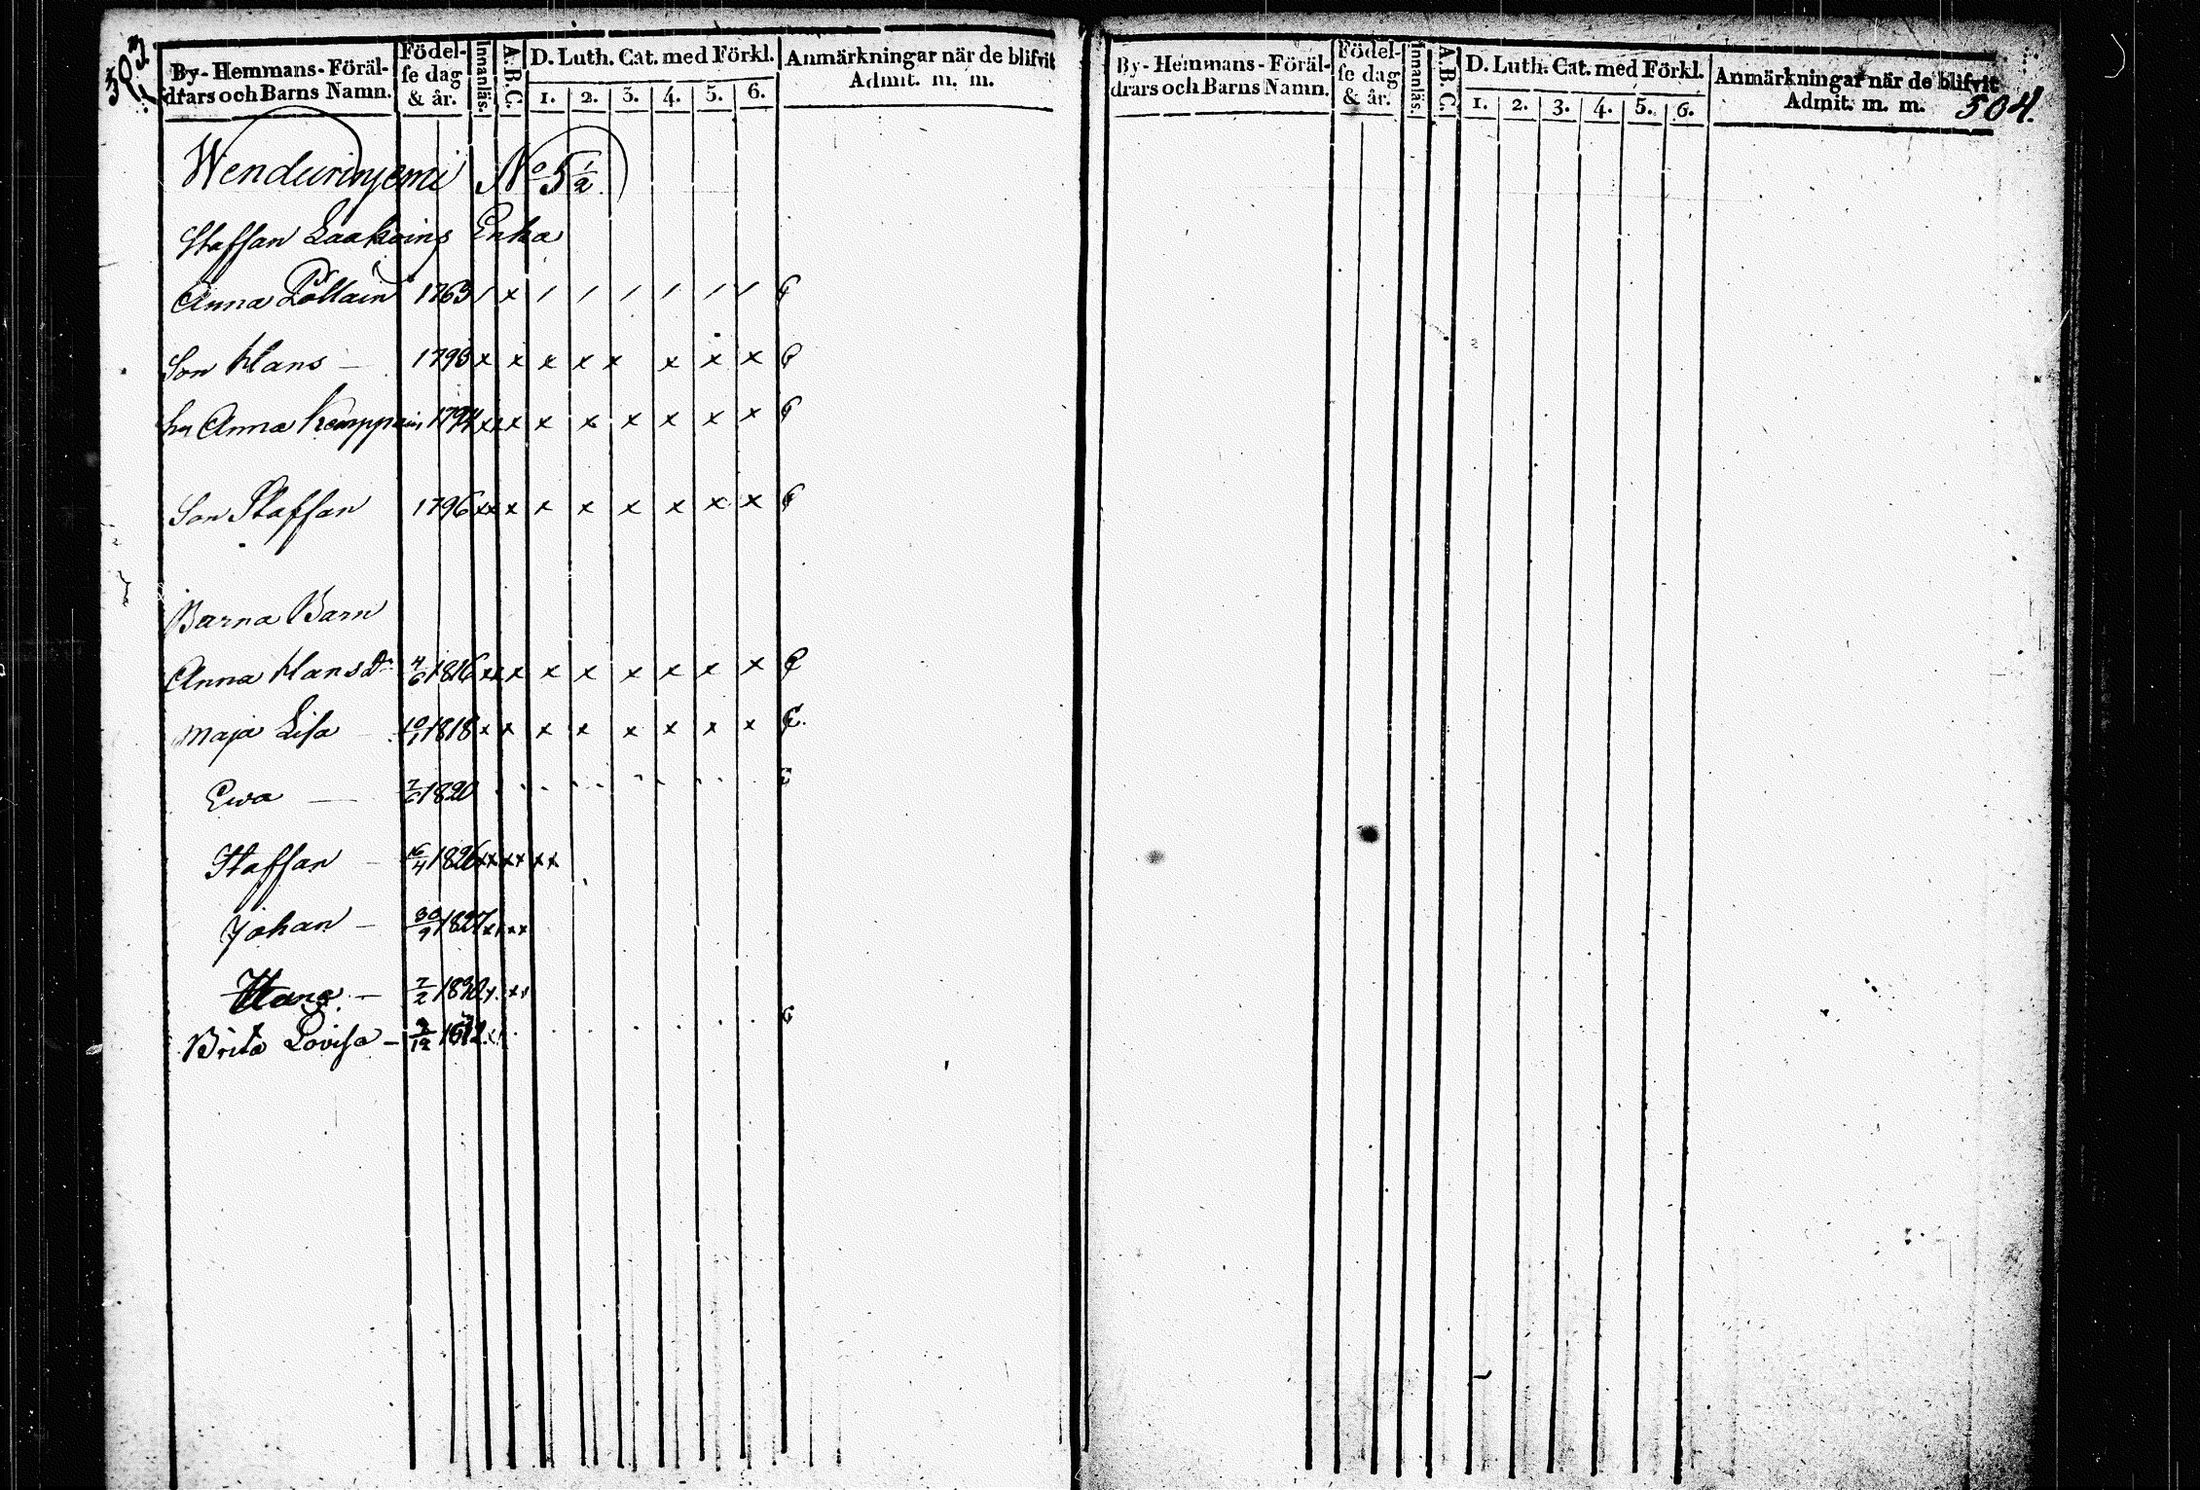 503.
By- Hemmans- Föräl-
drars och Barns Namn.
Födel-
se dag
& år.
Innanläs.
A. B. C.
D. Luth. Cat. med Förkl.
1. 2. 3. 4. 5. 6.
Anmärkningar när de blifvit
Admit. m. m.
No 5 1/2.
Staffan Laakains Enka
Anna Pölläin 1763 / x / / / / / /
Son Hans — 1793 x x x x x x x x
Anna Kemppain 1794 xx x x x x x x x
Son Staffan 1796 xx x x x x x x x
Barna Barn
Anna Hansdr 4/6 1816 xx x x x x x x x
Maja Lisa 10/1 1818 x x x x x x x x
Ewa — 7/6 1820
Staffan — 16/4 1826 xx xx xx
Johan — 30/9 1827 xx xx
Hans — 7/2 1830
Brita Lovisa — /12
By- Hemmans- Föräl-
drars och Barns Namn.
Födel-
se dag
& år.
Innanläs.
A. B. C.
D. Luth. Cat. med Förkl.
1. 2. 3. 4. 5. 6.
Anmärkningar när de blifvit
Admit. m. m.
504.